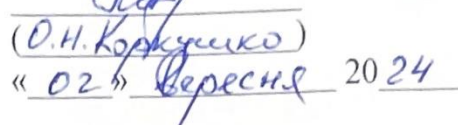 (О.Н. Коркушко)
« 02 » вересня 20 24